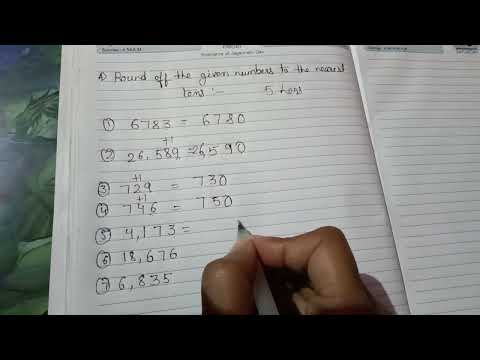 A) Round off the given numbers to the nearest
tens :- 5 tens
① 6783 = 6780
+1
② 26,589 = 26,590
+1
③ 729 = 730
+1
④ 746 = 750
⑤ 4,173 =
⑥ 18,676
⑦ 6,835